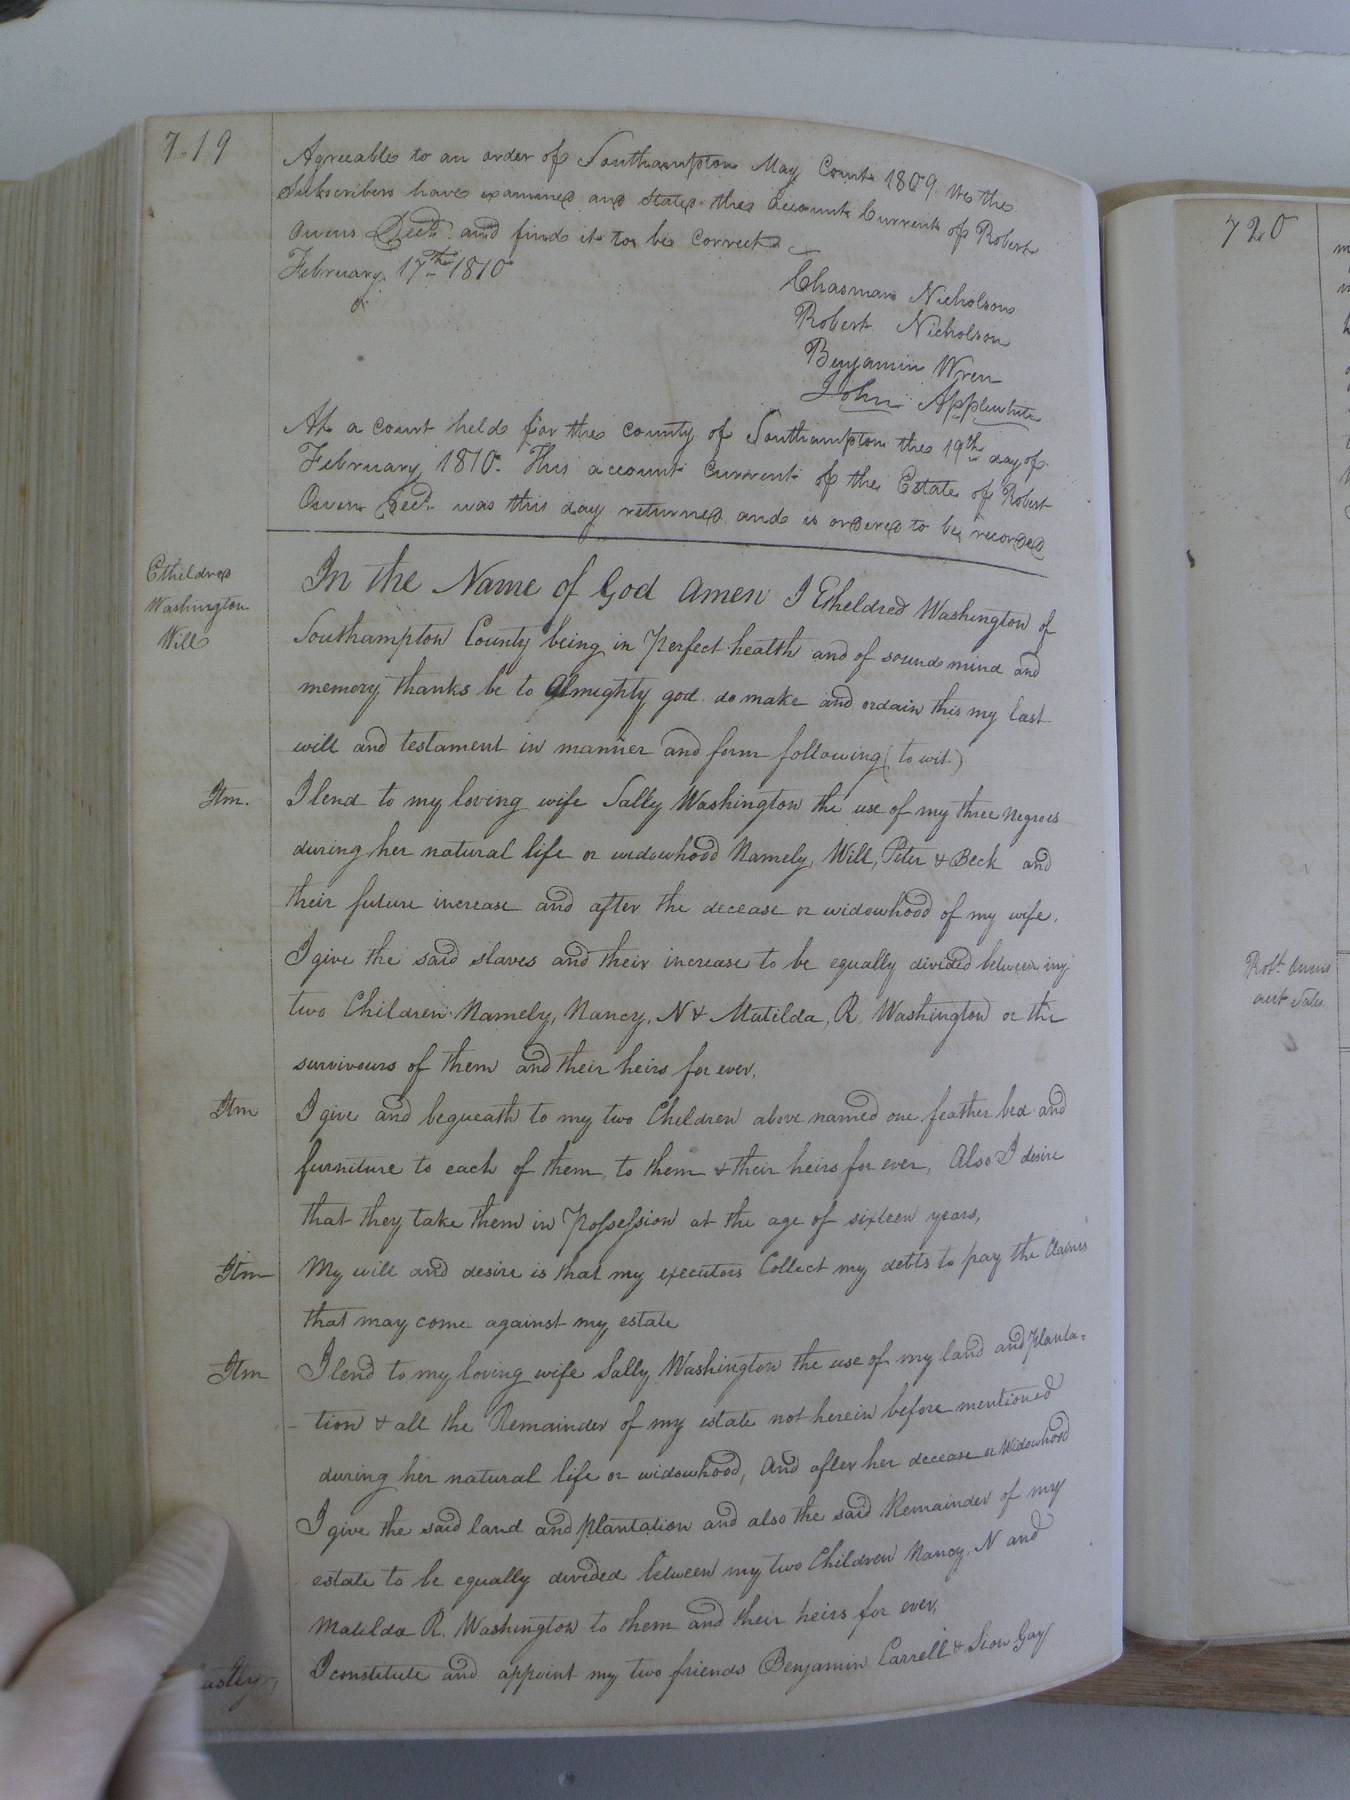 719
Agreeable to an order of Southampton May Court 1809. We the
Subscribers have examined and stated the account Current of Robert
Owens Decd. and find it to be correct
February 17th 1810
Chasman Nicholson
Robert Nicholson
Benjamin Wren
John Applewhite
At a court held for the county of Southampton the 19th day of
February 1810. This account Current of the Estate of Robert
Owens Decd. was this day returned and is ordered to be recorded
Etheldred
Washington
Will
In the Name of God Amen I Etheldred Washington of
Southampton County being in Perfect health and of sound mind and
memory thanks be to Almighty god do make and ordain this my last
will and testament in manner and form following (to wit)
Itm. I lend to my loving wife Sally Washington the use of my three negroes
during her natural life or widowhood Namely, Will, Peter & Beck and
their future increase and after the decease or widowhood of my wife.
I give the said slaves and their increase to be equally divided between my
two Children Namely, Nancy, N & Matilda, R. Washington or the
survivours of them and their heirs for ever.
Itm I give and bequeath to my two Children above named one feather bed and
furniture to each of them, to them & their heirs for ever, Also I desire
that they take them in Possession at the age of sixteen years,
Itm My will and desire is that my executors Collect my debts to pay the Claims
that may come against my estate
Itm I lend to my loving wife Sally Washington the use of my land and Planta=
-tion & all the Remainder of my estate not herein before mentioned
during her natural life or widowhood, And after her decease or Widowhood
I give the said land and plantation and also the said Remainder of my
estate to be equally divided between my two Children Nancy. N and
Matilda R. Washington to them and their heirs for ever,
Lastly, I constitute and appoint my two friends Benjamin Carrell & Sion Gay
720
Robt. Owens
acct Sales